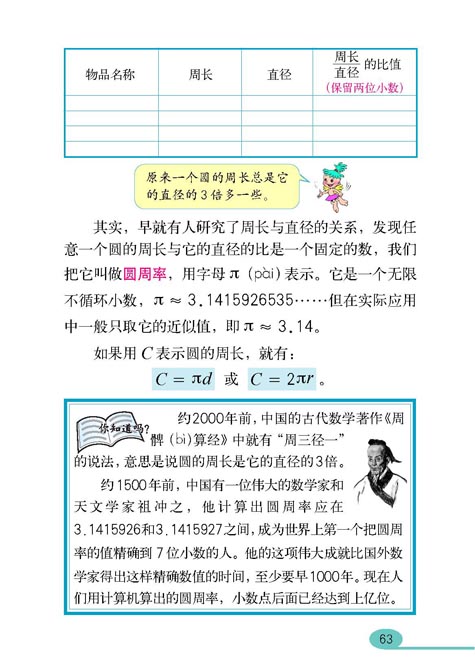 物品名称 周长 直径 周长/直径 的比值
(保留两位小数)
原来一个圆的周长总是它
的直径的3倍多一些。
其实，早就有人研究了周长与直径的关系，发现任
意一个圆的周长与它的直径的比是一个固定的数，我们
把它叫做圆周率，用字母 π (pài) 表示。它是一个无限
不循环小数，π ≈ 3.1415926535……但在实际应用
中一般只取它的近似值，即 π ≈ 3.14。
如果用 C 表示圆的周长，就有：
C = πd 或 C = 2πr 。
你知道吗？
约2000年前，中国的古代数学著作《周
髀 (bì)算经》中就有“周三径一”
的说法，意思是说圆的周长是它的直径的3倍。
约1500年前，中国有一位伟大的数学家和
天文学家祖冲之，他计算出圆周率应在
3.1415926和3.1415927之间，成为世界上第一个把圆周
率的值精确到 7 位小数的人。他的这项伟大成就比国外数
学家得出这样精确数值的时间，至少要早1000年。现在人
们用计算机算出的圆周率，小数点后面已经达到上亿位。
63